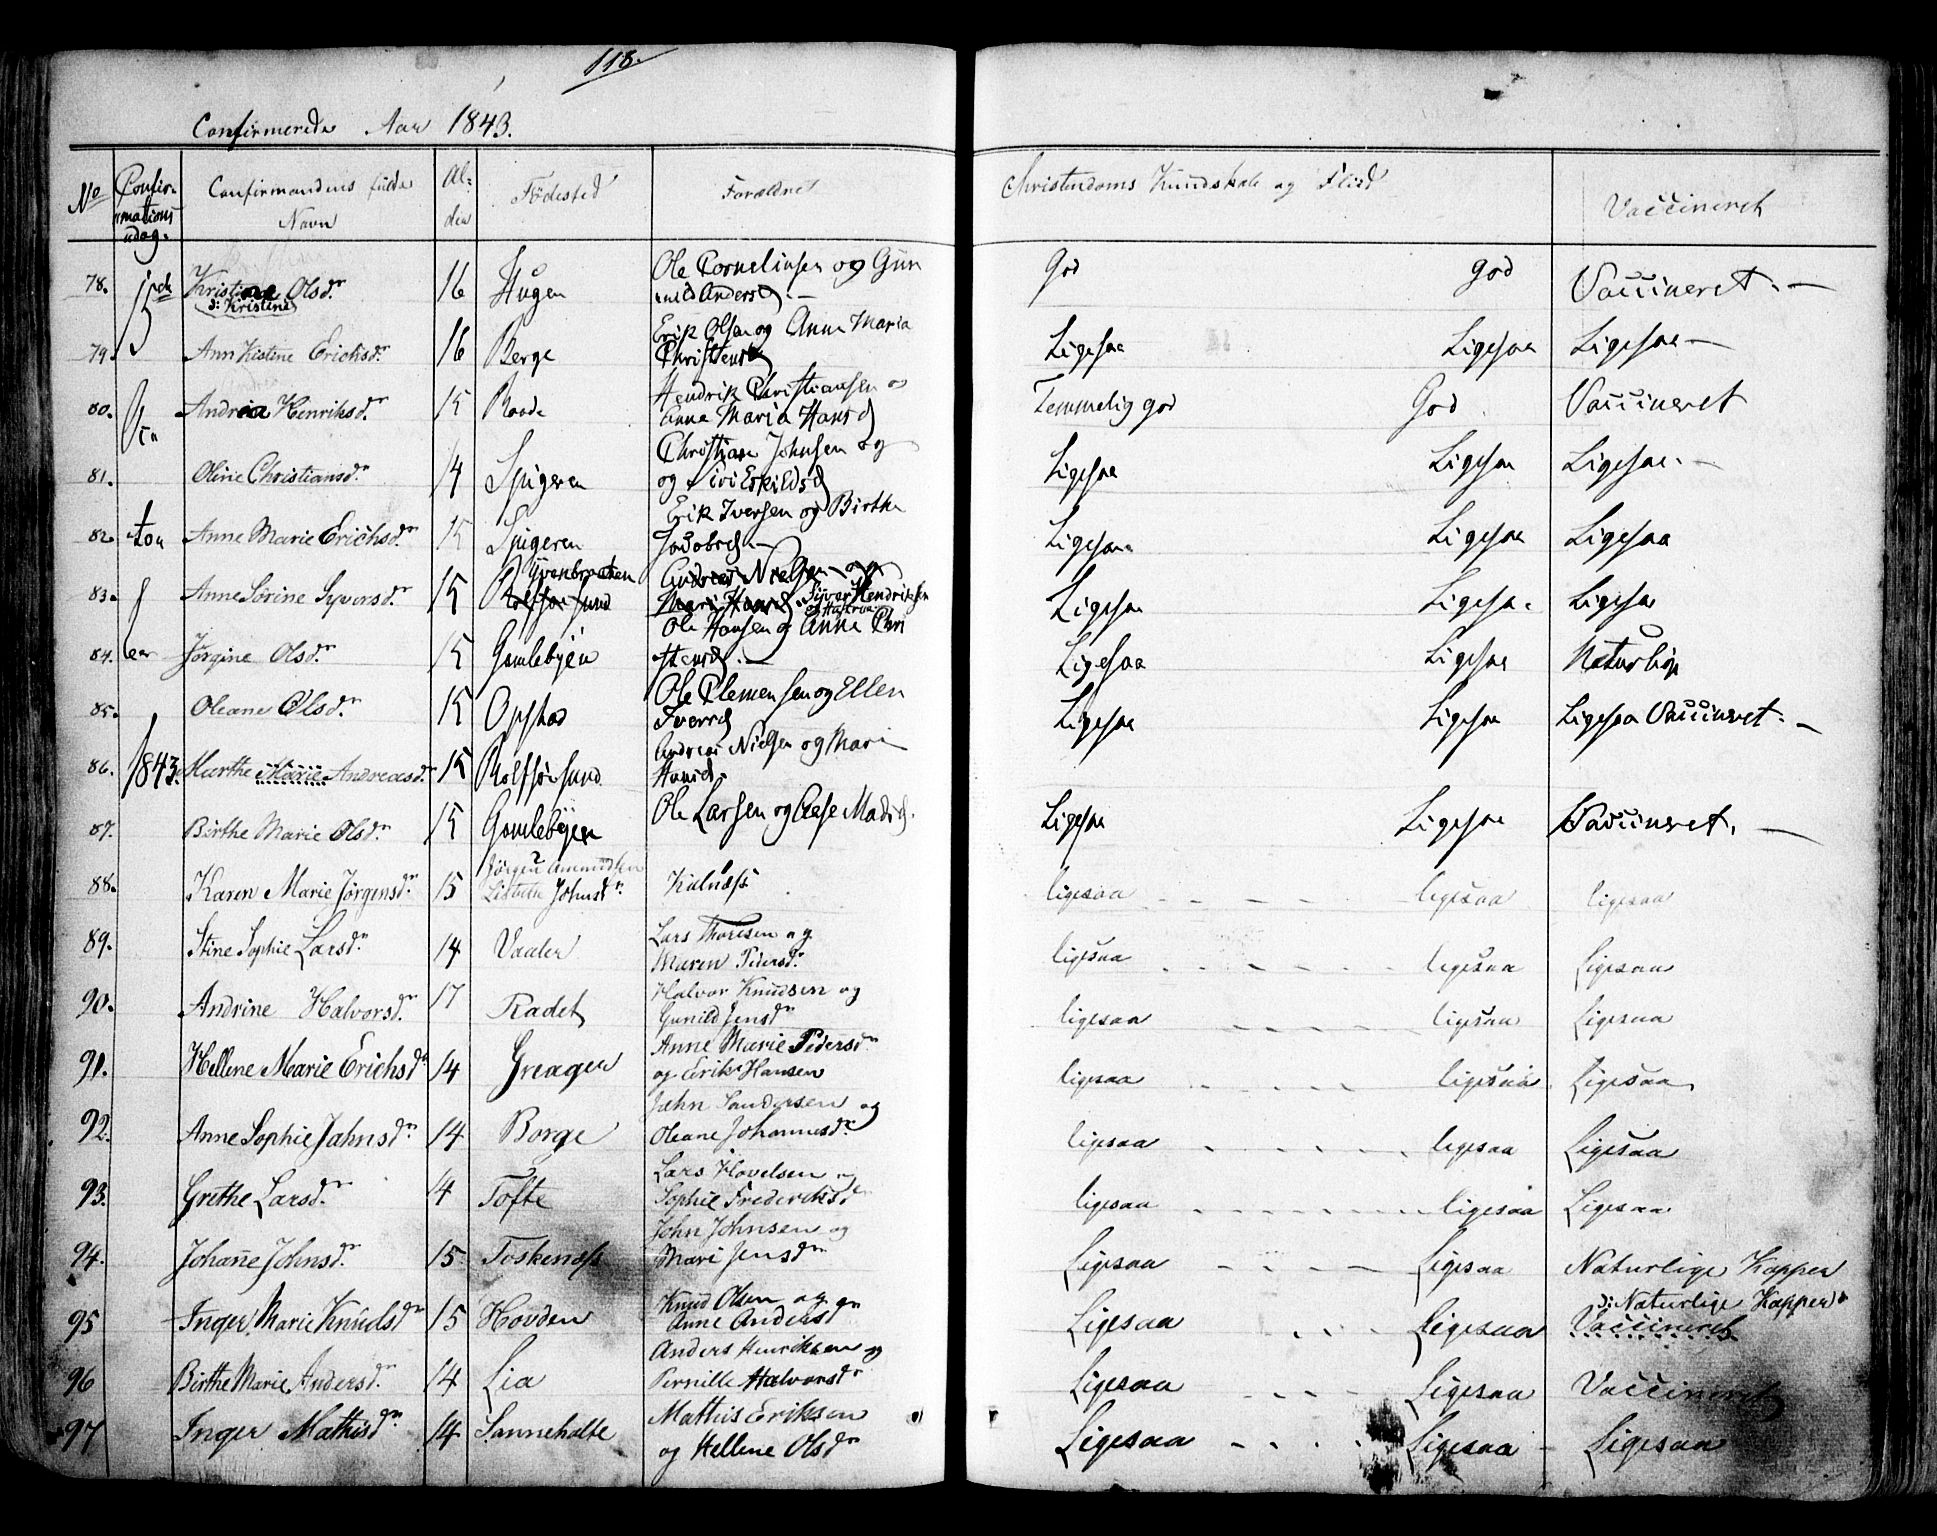 118.
Confirmerede Aar 1843.
No Confirmationsdag. Confirmandens fulde Navn Alder Födested Forældre Christendoms Kundskab og Flid Vaccineret
78. 15de Kristine Olsdr 16 Hugen Ole Corneliusen og Gun God god Vaccineret. —
ɔ: Kristine nild Andersd. —
79. Ann Kistine Erichsdr 16 Berge Erik Olsen og Anne Maria Ligesaa Ligesaa Ligesaa —
Christensd
80. Andrea Henriksdr 15 Roode Hendrik Christiansen o Temmelig god God Vaccineret
Anna Maria Hansd
81. Oline Christiansdr 14 Spigeren Christian Johnsen og Ligesaa Ligesaa Ligesaa. —
og Sivi Eskildsd
82. Anne Marie Erichsdr 15 Spigeren Erik Iversen og Birthe Ligesaa Ligesaa Ligesaa
Jacobsd. —
83. Anne Sörine Syversdr 15 Rolfsösund Andreas Nielsen og Ligesaa Ligesaa. Ligesaa
Mari Hansd. Syver Hendriksen
84. Jörgine Olsdr 15 Gamlebyen Ole Hansen og Anne Chri Ligesaa Ligesaa Naturlig
stensd. —
85. Oleane Olsdr 15 Opstad Ole Clemensen og Ellen Ligesaa Ligesaa Ligesaa Vaccineret. —
Iversd
86. 1843. Marthe Marie Andreasdr 15 Rolfsösund Andreas Nielsen og Mari
Hansd.
87. Birthe Marie Olsdr 15 Gamlebyen Ole Larsen og Aase Madsd. Ligesaa Ligesaa Vaccineret. —
88. Karen Marie Jörgensdr 15 Jörgen Ammundsen Kalnæss ligesaa ligesaa ligesaa
Lisbeth Johnsdr
89. Stine Sophie Larsdr 14 Vaaler Lars Thoresen og ligesaa ligesaa Ligesaa
Maren Pedersdr
90. Andrine Halvorsdr 17 Radet Halvor Knudsen og ligesaa ligesaa Ligesaa
Gunild Jensdr
91. Hellene Marie Erichsdr 14 Greager Anne Marie Pedersdr ligesaa ligesaa Ligesaa
og Erik Hansen
92. Anne Sophie Jahnsdr 14 Borge Jahn Sandersen og ligesaa ligesaa Ligesaa
Oleane Johannesdr
93. Grethe Larsdr 14 Tofte Lars Hovelsen og ligesaa ligesaa Ligesaa
Sophie Frederiksdr
94. Johanne Johnsdr 15 Toskenæss John Johnsen og Ligesaa Ligesaa Naturlige Kopper
Mari Jensdr
95 Inger Marie Knudsdr 15 Hovden Knud Olsen og Ligesaa Ligesaa ɔ: Naturlige Kopper
Anne Andersdr Vaccineret
96 Birthe Marie Andersd. 14 Lia Anders Henriksen og Ligesaa Ligesaa Vaccineret
Pernille Halvorsdr
97 Inger Mathisdr 14 Sanneholte Mathis Eriksen Ligesaa Ligesaa Ligesaa
og Hellene Olsdr